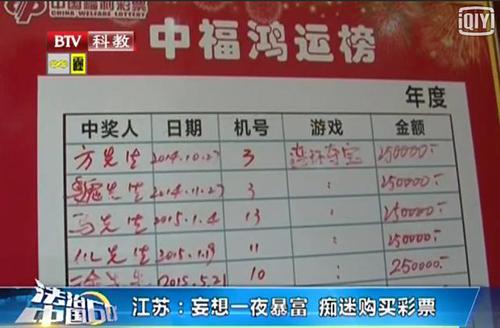 中国福利彩票
CHINA WELFARE LOTTERY
iQIYI
BTV 科教
中福鸿运榜
年度
中奖人 日期 机号 游戏 金额
方先生 2014.10.27 3 连环夺宝 250000.-
魏先生 2014.11.27 3 : 250000.-
马先生 2015.1.4 13 : 250000.-
先生 2015.1.19 11 : 250000.-
徐先生 2015.5.21 10 : 250000.-
法治中国60′
江苏：妄想一夜暴富 痴迷购买彩票